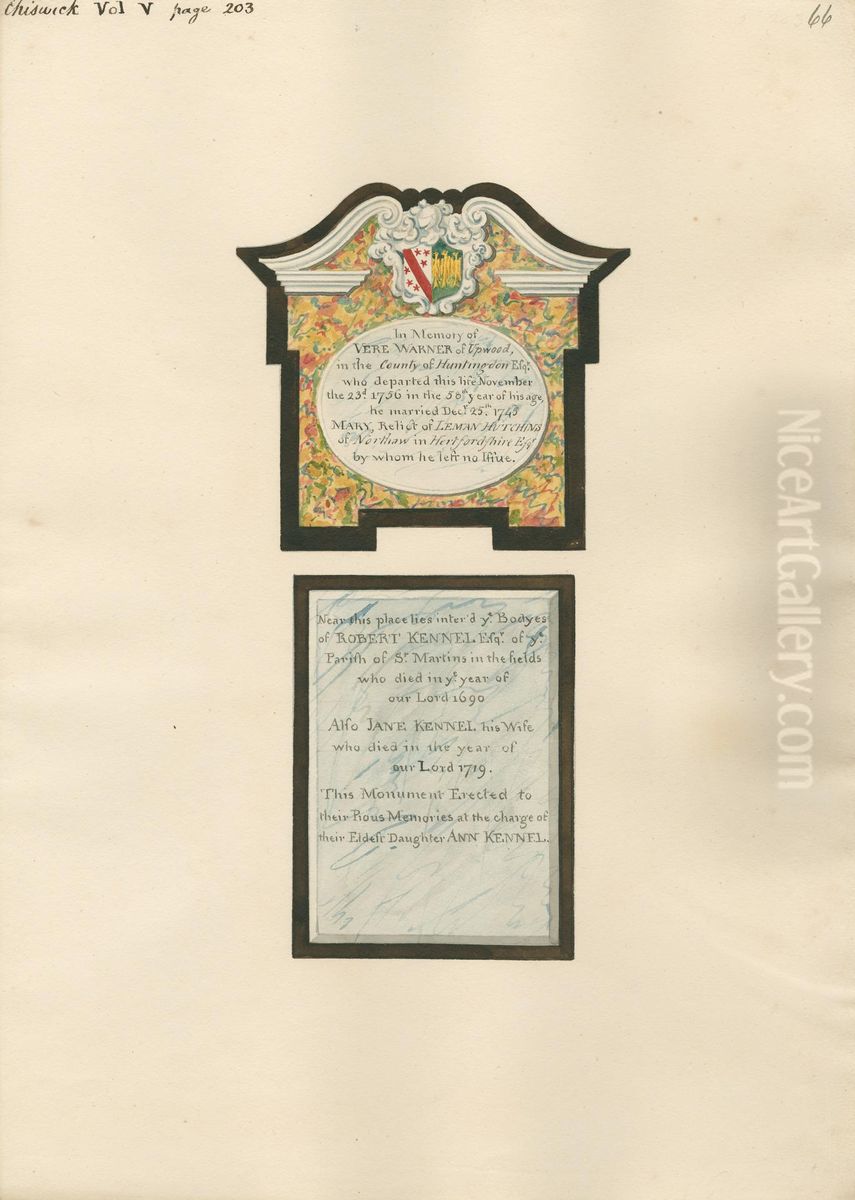 Chiswick Vol V page 203
66
In Memory of
VERE WARNER of Upwood,
in the County of Huntingdon Esqr.
who departed this life November
the 23d. 1756 in the 50th year of his age,
he married Decr. 25th. 1745
MARY, Relict of LEMAN HUTCHINS
of Northaw in Hertfordshire Esqr
by whom he left no Issue.
Near this place lies inter'd ye. Bodyes
of ROBERT KENNEL Esqr. of ye.
Parish of St. Martins in the fields
who died in ye. year of
our Lord 1690
Also JANE KENNEL his Wife
who died in the year of
our Lord 1719.
This Monument Erected to
their Pious Memories at the charge of
their Eldest Daughter ANN KENNEL.
NiceArtGallery.com